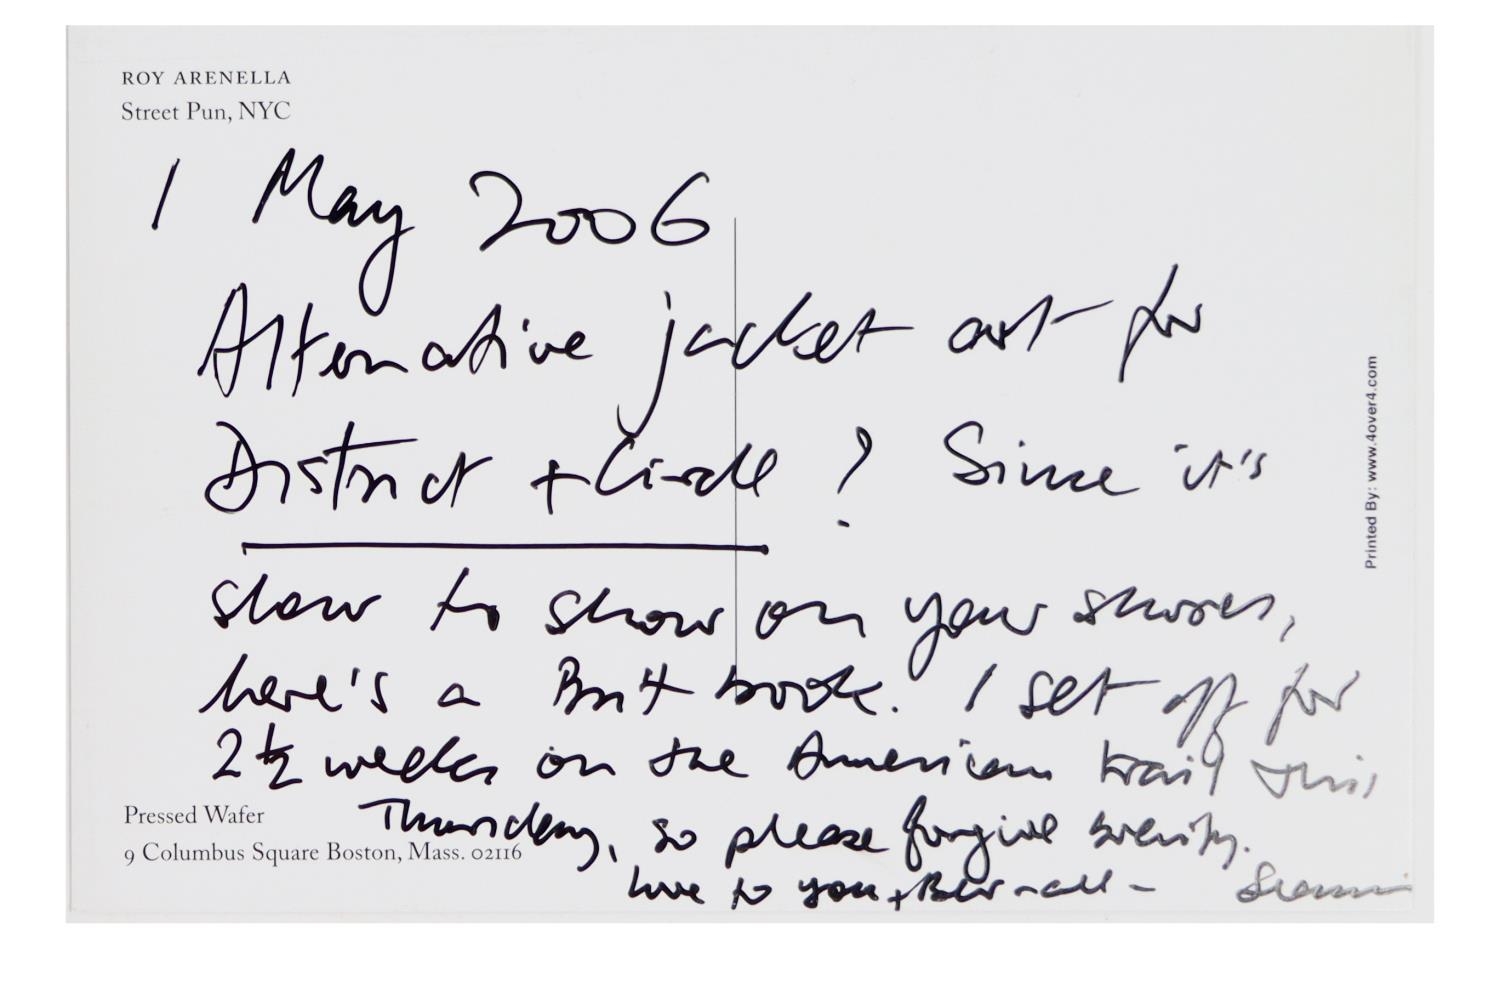 ROY ARENELLA
Street Pun, NYC
1 May 2006
Alternative jacket art for
District + Circle? Since it's
slow to show on your shores,
here's a Brit book. I set off for
2½ weeks on the American trail this
Thursday, so please forgive brevity.
Love to you + Bev - all - Seamus
Pressed Wafer
9 Columbus Square Boston, Mass. 02116
Printed By: www.4over4.com